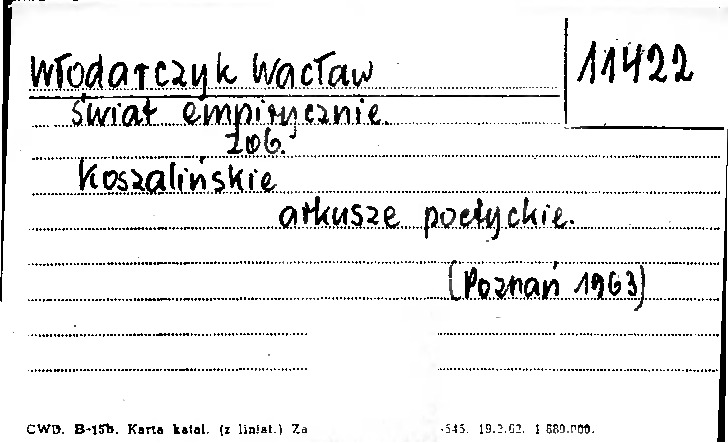 Włodarczyk Wacław
11422
Świat empirycznie.
zob.
Koszalińskie
arkusze poetyckie.
(Poznań 1963)
CWD. B-15b. Karta katal. (z liniat.) Za -545. 19.2.62. 1 880.000.